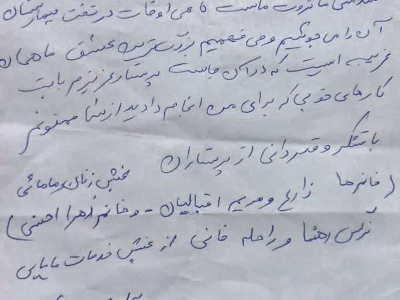 سلامتی ما ثروت ماست گاهی اوقات در تخت بیمارستان
آن را می‌جوییم و می‌فهمیم بزرگترین عشق ما همان
غریبه است که در کنار ماست پرستار عزیزم بابت
کارهای خوبی که برای من انجام دادید از شما ممنونم
با تشکر و قدردانی از پرستاران
بخش زنان و مامائی
(خانم‌ها زارع و مریم اقبالیان - و خانم زهرا
نرگس رهنما و راحله خانی از بخش خدمات مامایی